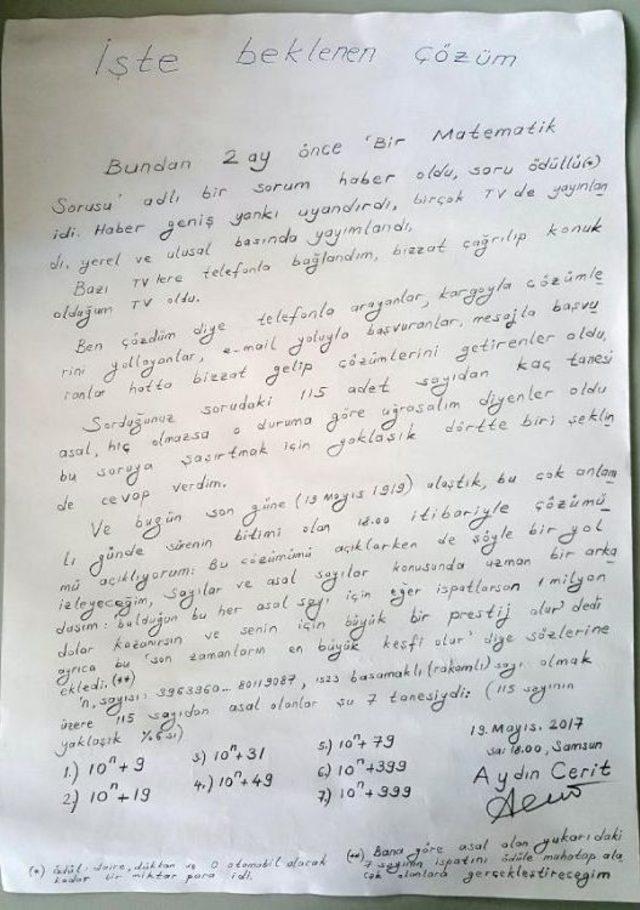 İşte beklenen çözüm
Bundan 2 ay önce 'Bir Matematik
Sorusu' adlı bir sorum haber oldu, soru ödüllü(*)
idi. Haber geniş yankı uyandırdı, birçok TV de yayınlan
dı, yerel ve ulusal basında yayımlandı,
Bazı TV lere telefonla bağlandım, bizzat çağrılıp konuk
olduğum TV oldu.
Ben çözdüm diye telefonla arayanlar, kargoyla çözümle
rini yollayanlar, e-mail yoluyla başvuranlar, mesajla başvu
ranlar hatta bizzat gelip çözümlerini getirenler oldu,
Sorduğunuz sorudaki 115 adet sayıdan kaç tanesi
asal, hiç olmazsa o duruma göre uğraşalım diyenler oldu
bu soruya şaşırtmak için yaklaşık dörtte biri şeklin
de cevap verdim.
Ve bugün son güne (19 Mayıs 1919) ulaştık, bu çok anlam
lı günde sürenin bitimi olan 18.00 itibariyle çözümü
mü açıklıyorum: Bu çözümümü açıklarken de şöyle bir yol
izleyeceğim, sayılar ve asal sayılar konusunda uzman bir arka
daşım: 'bulduğun bu her asal sayı için eğer ispatlarsan 1 milyon
dolar kazanırsın ve senin için büyük bir prestij olur' dedi
ayrıca bu 'son zamanların en büyük keşfi olur' diye sözlerine
ekledi.(**)
'n, sayısı: 3963960... 80119087, 1523 basamaklı (rakamlı) sayı olmak
üzere 115 sayıdan asal olanlar şu 7 tanesiydi: (115 sayının
yaklaşık %6 sı)
1.) 10ⁿ+9
2) 10ⁿ+19
3) 10ⁿ+31
4.) 10ⁿ+49
5.) 10ⁿ+79
6) 10ⁿ+399
7) 10ⁿ+999
19. Mayıs. 2017
Saat 18.00, Samsun
Aydın Cerit
(*) ödül: daire, dükkan ve 0 otomobil alacak
kadar bir miktar para idi.
(**) Bana göre asal olan yukarıdaki
7 sayının ispatını ödüle muhatap ala
cak olanlara gerçekleştireceğim